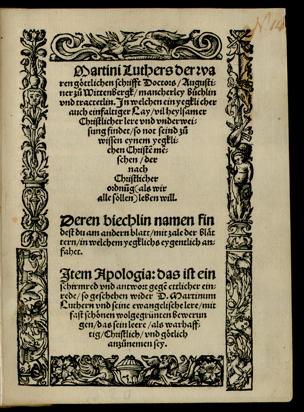 Martini Luthers der wa
ren göttlichen schrifft Doctors / Augusti-
ner zů Wittenbergk / mancherley büchlin
vnd tractetlin. In welchen ein yegklicher
auch einfaltiger Lay / vil heylsamer
Christlicher lere vnd vnderwei-
sung findet / so not seind zů
wissen eynem yegkli-
chen Christē me-
schen / der
nach
Christlicher
ordnūg (als wir
alle söllen) leben will.
Deren biechlin namen fin
dest du am andern blatt / mit zale der blåt
tern / in welchem yegklichs eygentlich an-
fahet.
Item Apologia: das ist ein
schirmred vnd antwort gegē ettlicher ein-
rede / so geschehen wider D. Martinum
Luthern vnd seine ewangelische lere / mit
fast schönen wolgegrünten bewerun
gen / das sein leere / als warhaff-
tig / Christlich / vnd götlich
anzůnemen sey.